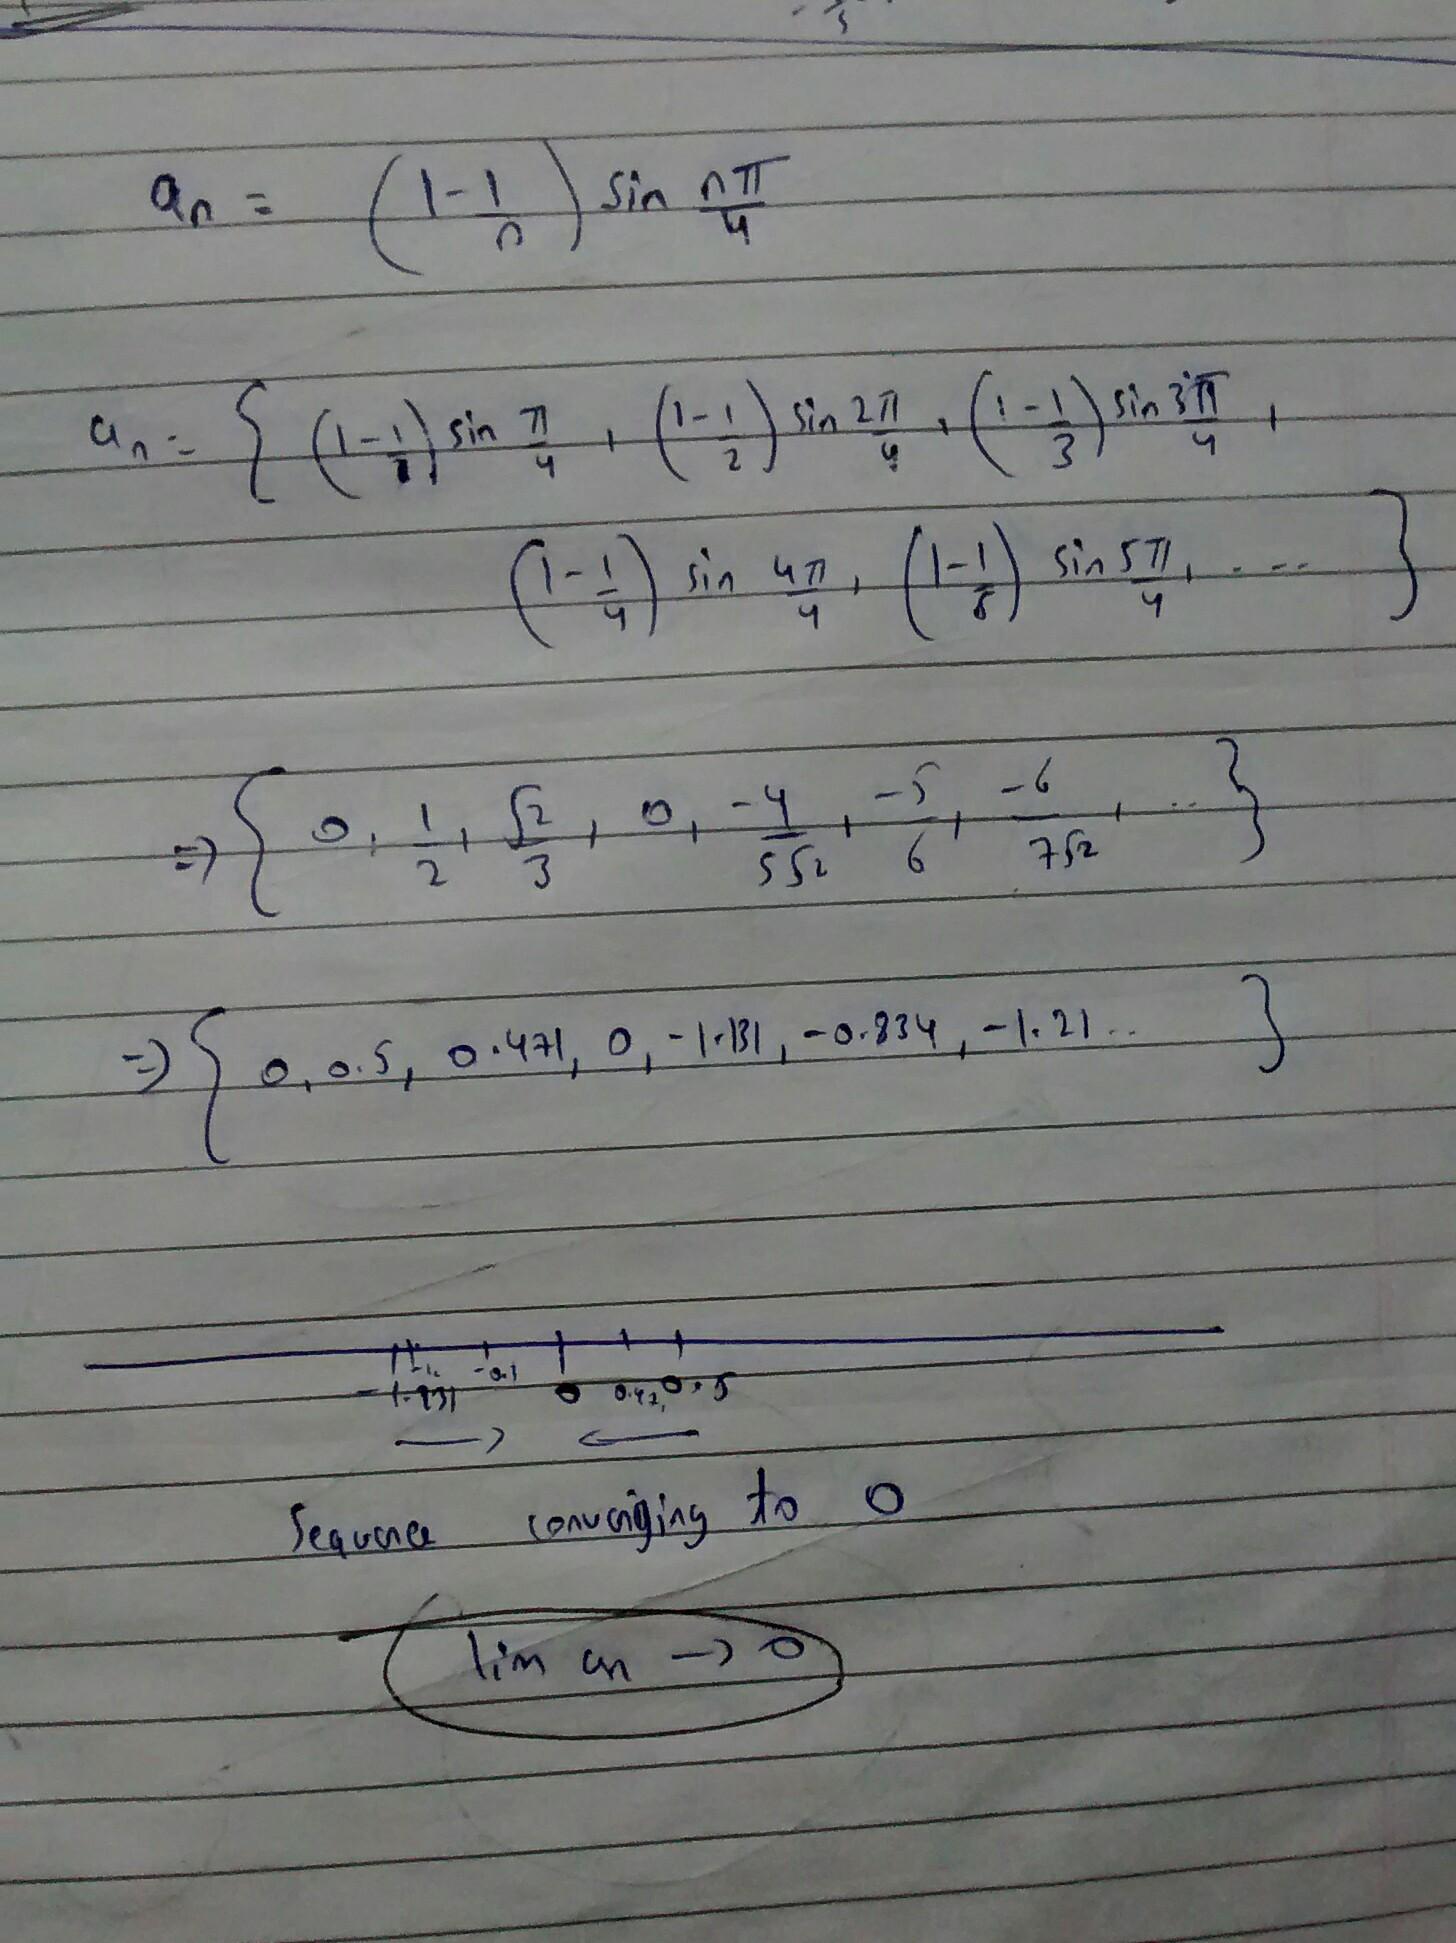 aₙ = (1 - 1/n) sin nπ/4
aₙ = { (1 - 1/1) sin π/4 , (1 - 1/2) sin 2π/4 , (1 - 1/3) sin 3π/4 ,
(1 - 1/4) sin 4π/4 , (1 - 1/5) sin 5π/4 , .... }
=> { 0 , 1/2 , √2/3 , 0 , -4/5√2 , -5/6 , -6/7√2 , ... }
=> { 0 , 0.5 , 0.471 , 0 , -1.131 , -0.834 , -1.21 .. }
0 0.5
→ ←
Sequence converging to 0
lim an → 0